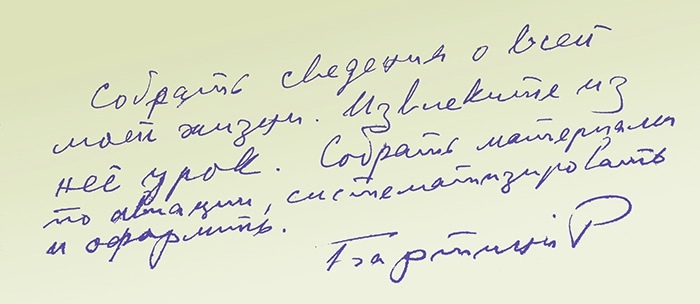 Собрать сведения о всей
моей жизни. Извлеките из
неё урок. Собрать материалы
по авиации, систематизировать
и оформить.
Бартини Р